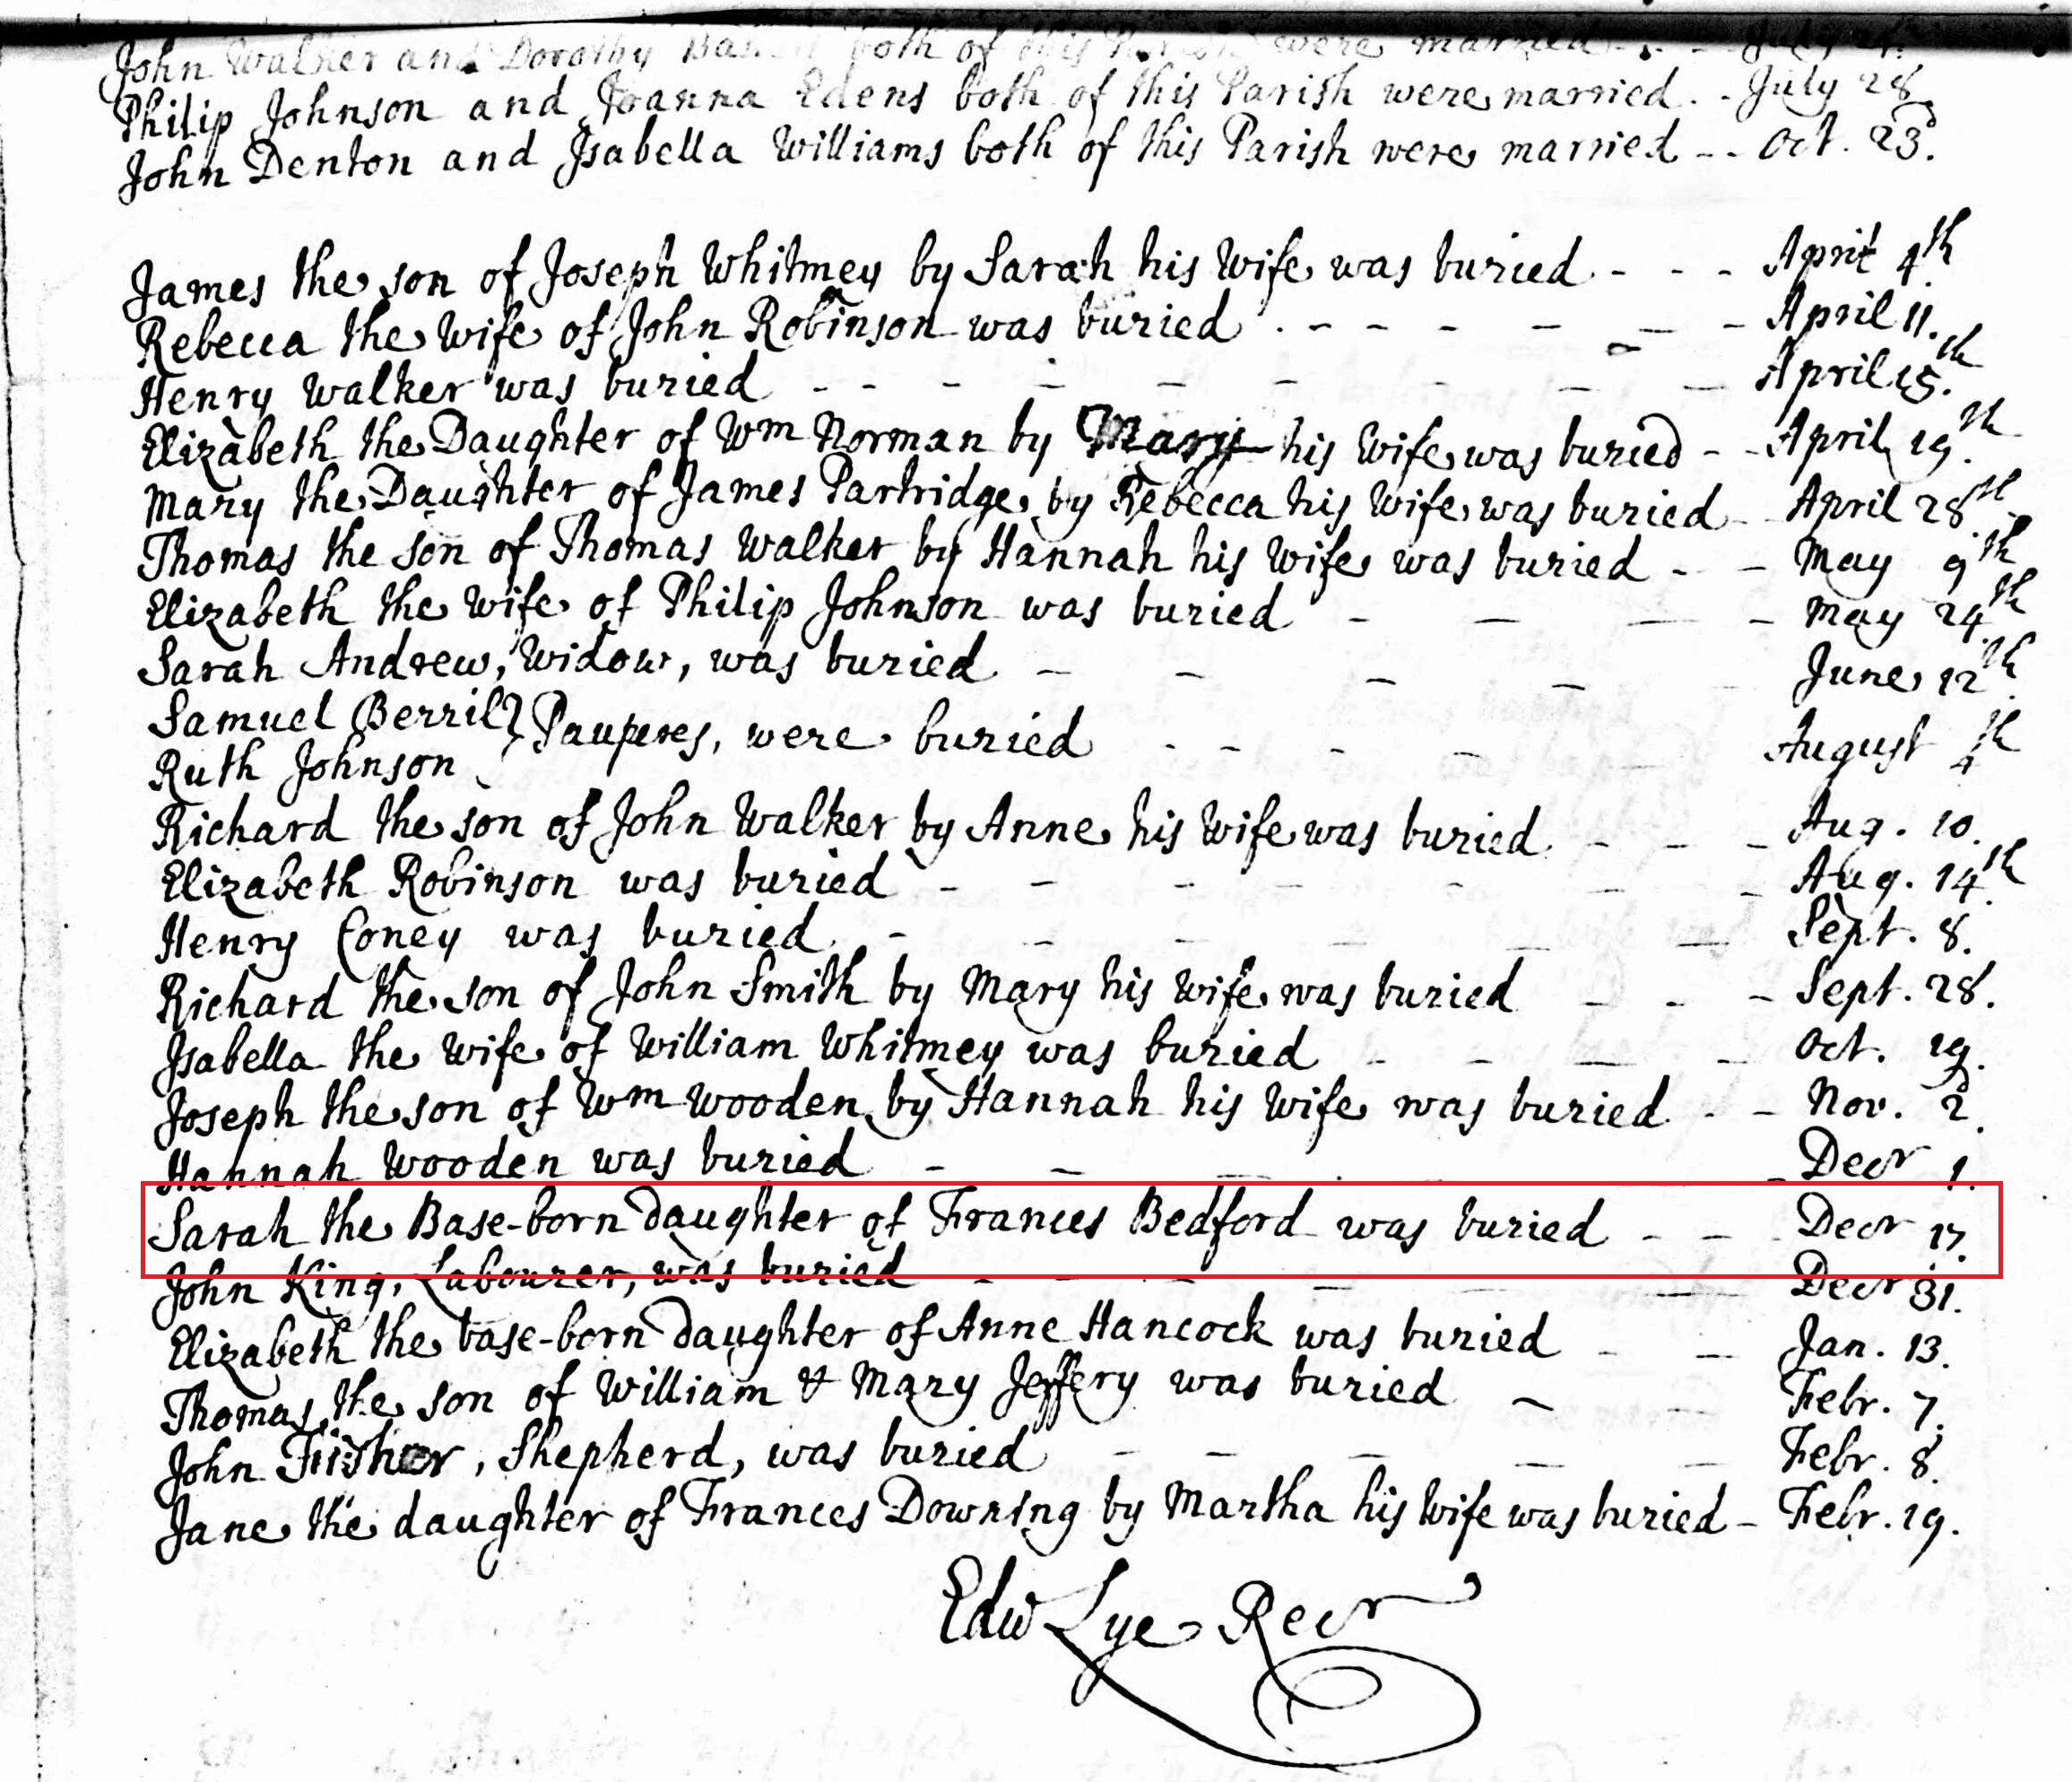 John Walker and Dorothy both of this were married - - July
Philip Johnson and Joanna Edens both of this Parish were married - - July 28
John Denton and Isabella Williams both of this Parish were married - - Oct. 23d.
James the son of Joseph Whitmey by Sarah his Wife was buried - - - April 4th
Rebecca the Wife of John Robinson was buried - - - - - - - April 11.
Henry Walker was buried - - - - - - - - April 15.th
Elizabeth the Daughter of Wm Norman by Mary his Wife was buried - - April 19th.
Mary the Daughter of James Partridge by Rebecca his Wife was buried - - April 28th
Thomas the son of Thomas Walker by Hannah his Wife was buried - - May 9th
Elizabeth the Wife of Philip Johnson was buried - - - - May 24th
Sarah Andrew, Widow, was buried - - - - June 12th.
Samuel Berril } Pauperes, were buried - - - - August 4th
Ruth Johnson
Richard the son of John Walker by Anne his Wife was buried - - - Aug. 10.
Elizabeth Robinson was buried - - - - - - - Aug. 14th
Henry Coney was buried - - - - - - Sept. 8.
Richard the son of John Smith by Mary his Wife was buried - - - Sept. 28.
Isabella the Wife of William Whitmey was buried - - - - Oct. 19.
Joseph the son of Wm Wooden by Hannah his Wife was buried - - Nov. 2d.
Hannah Wooden was buried - - - - - Decr 1.
Sarah the Base-born daughter of Frances Bedford was buried - - - Decr 17.
John King, Labourer, was buried - - - - - Decr 31.
Elizabeth the base-born daughter of Anne Hancock was buried - - Jan. 13.
Thomas the son of William & Mary Jeffery was buried - - Febr. 7.
John Fisher, Shepherd, was buried - - - - - Febr. 8.
Jane the daughter of Frances Downing by Martha his Wife was buried - Febr. 19.
Edw Lye Recr